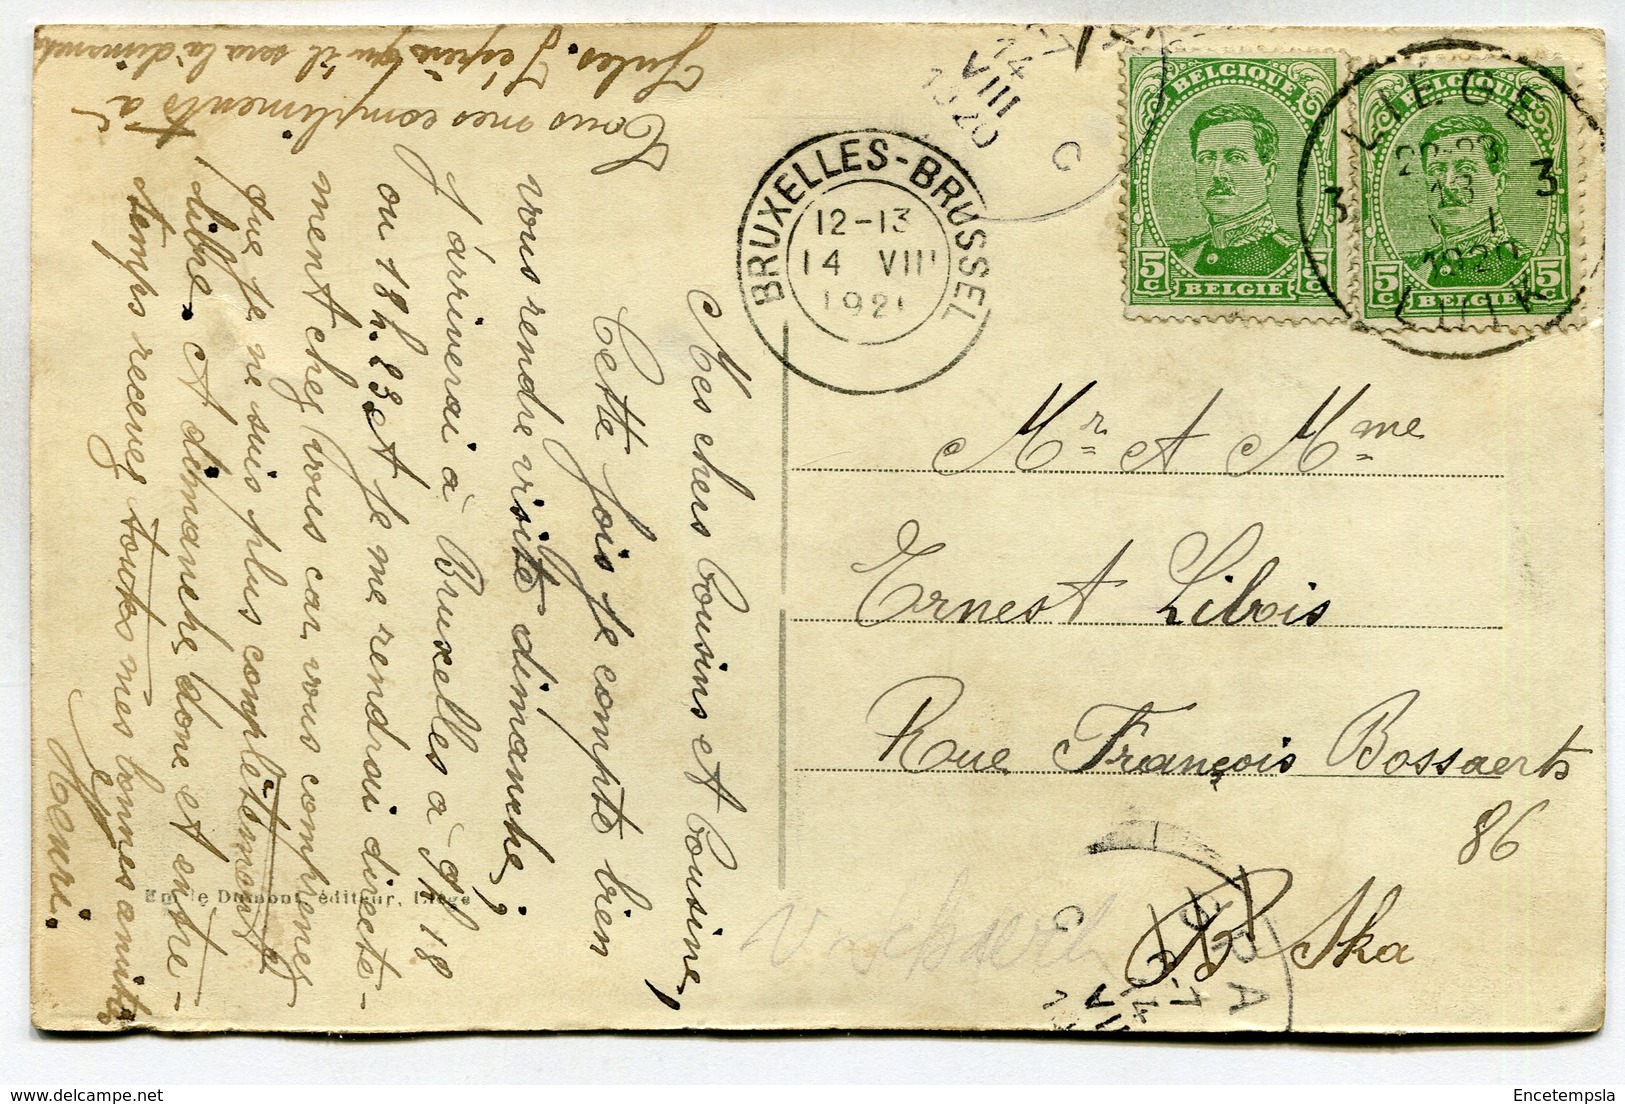 Mes chers Cousins et Cousine,
Cette fois je compte bien
vous rendre visite dimanche;
j'arriverai à Bruxelles à 9h18
ou 18h.23 et je me rendrai directe-
ment chez vous car, vous comprenez
que je ne suis plus complètement
libre. A dimanche donc et entre-
temps recevez toutes mes bonnes amitiés
Henri.
Tous mes compliments à
Jules. J'espère qu'il sera là dimanche
Emile Dumont, éditeur, Liège
BRUXELLES-BRUSSEL
12-13
14 VIII
192
14
VIII
1920
C
BELGIQUE
5c 5c
BELGIE
BELGIQUE
5c 5c
BELGIE
LIEGE
3 3
13
1920
LUIK
Mr et Mme
Ernest Libois
Rue François Bossaerts
86
Ska
C
14
VIII